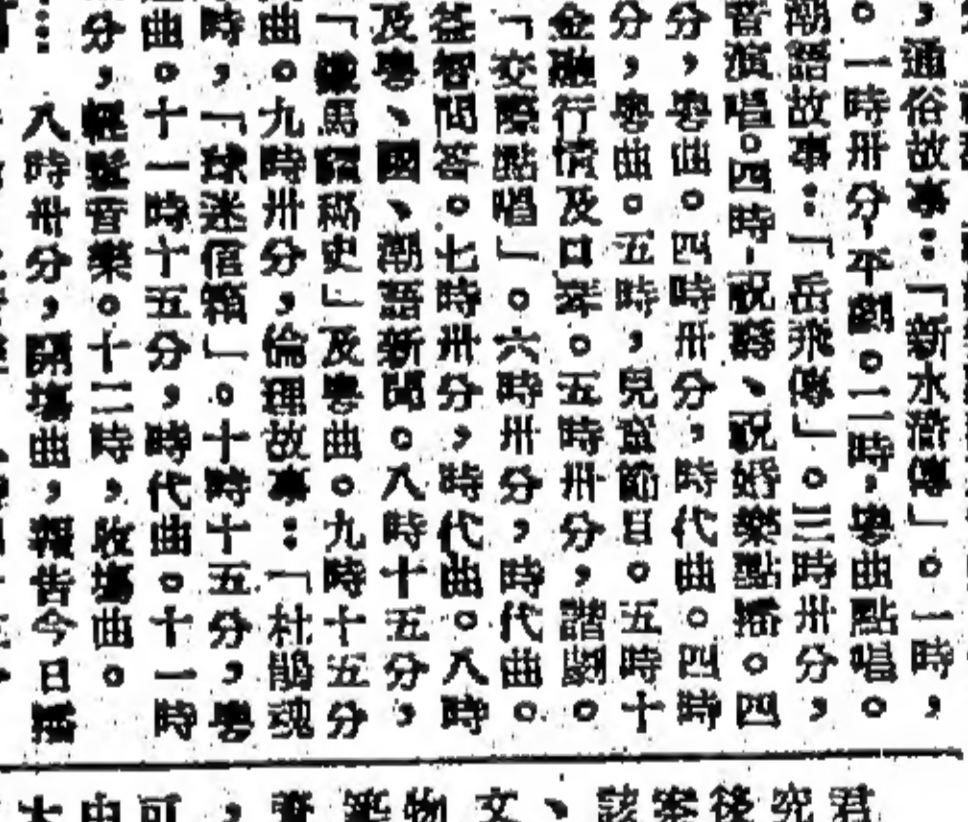 ，通俗故事：「新水滸傳」。一時，
。一時卅分，平劇。二時，粵曲點唱。
潮語故事：「岳飛傳」。三時卅分，
音演唱。四時，祝壽、祝婚樂點播。四
分，粵曲。四時卅分，時代曲。四時
分，粵曲。五時，兒童節目。五時十
金融行情及口琴。五時卅分，諧劇。
「交際點唱」。六時卅分，時代曲。
益智問答。七時卅分，時代曲。八時
及粵、國、潮語新聞。八時十五分，
馬 秘史」及粵曲。九時十五分
曲。九時卅分，倫理故事：「杜鵑魂
時，「球迷信箱」。十時十五分，粵
曲。十一時十五分，時代曲。十一時
分，輕鬆音樂。十二時，收場曲。
八時卅分，開場曲，報告今日播
君
究
後
案
該
、
文
物
，
可
由
大